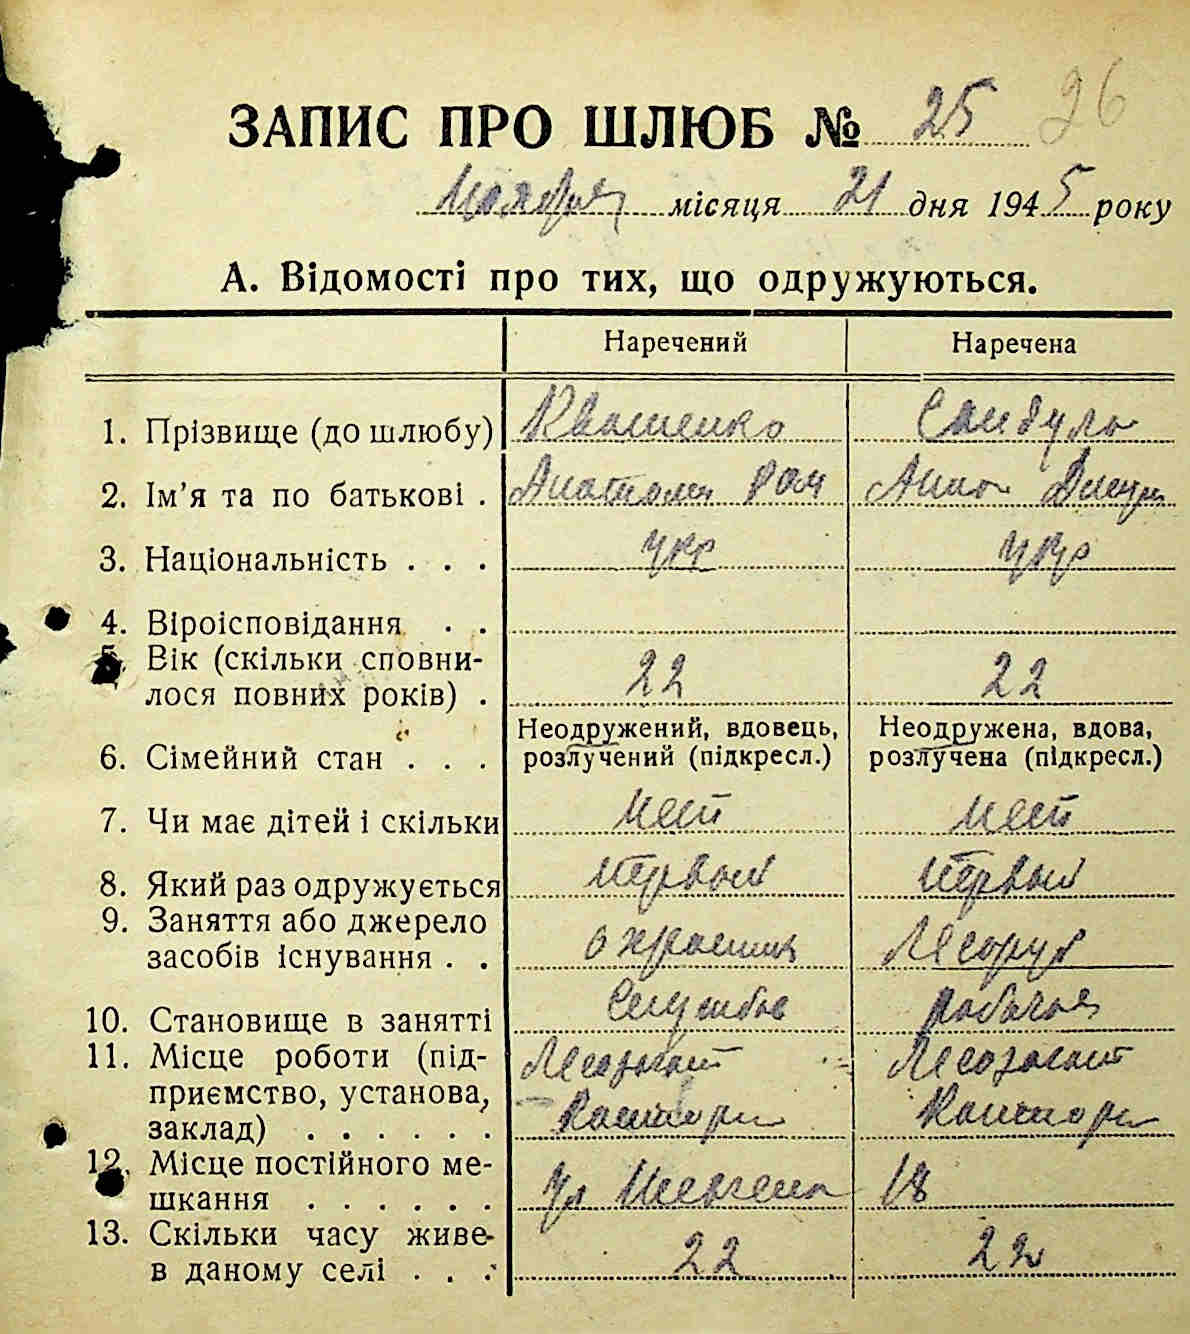 ЗАПИС ПРО ШЛЮБ № 25 26
Ноября місяця 21 дня 1945 року
А. Відомості про тих, що одружуються.
Наречений Наречена
1. Прізвище (до шлюбу) Квашенко Сандула
2. Ім'я та по батькові . Анатолий Анна
3. Національність . . . укр укр
4. Віроісповідання . .
5. Вік (скільки сповни-
лося повних років) . 22 22
Неодружений, вдовець, Неодружена, вдова,
6. Сімейний стан . . . розлучений (підкресл.) розлучена (підкресл.)
7. Чи має дітей і скільки нет нет
8. Який раз одружується первый первый
9. Заняття або джерело
засобів існування . . охранник Лесоруб
10. Становище в занятті рабочая
11. Місце роботи (під-
приємство, установа,
заклад) . . . . . .
12. Місце постійного ме-
шкання . . . . . . ул Шевченко 18
13. Скільки часу живе
в даному селі . . . 22 22